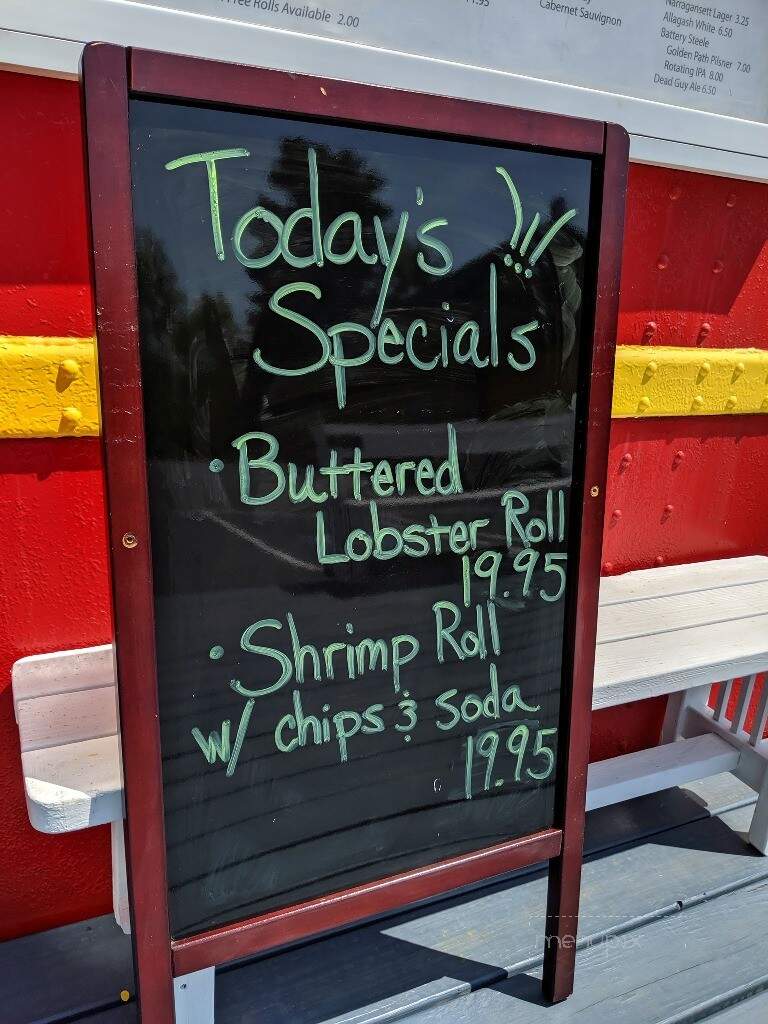 Free Rolls Available 2.00
Cabernet Sauvignon
Narragansett Lager 3.25
Allagash White 6.50
Battery Steele
Golden Path Pilsner 7.00
Rotating IPA 8.00
Dead Guy Ale 6.50
Today's
Specials
• Buttered
Lobster Roll
19.95
• Shrimp Roll
w/ chips & soda
19.95
menupix